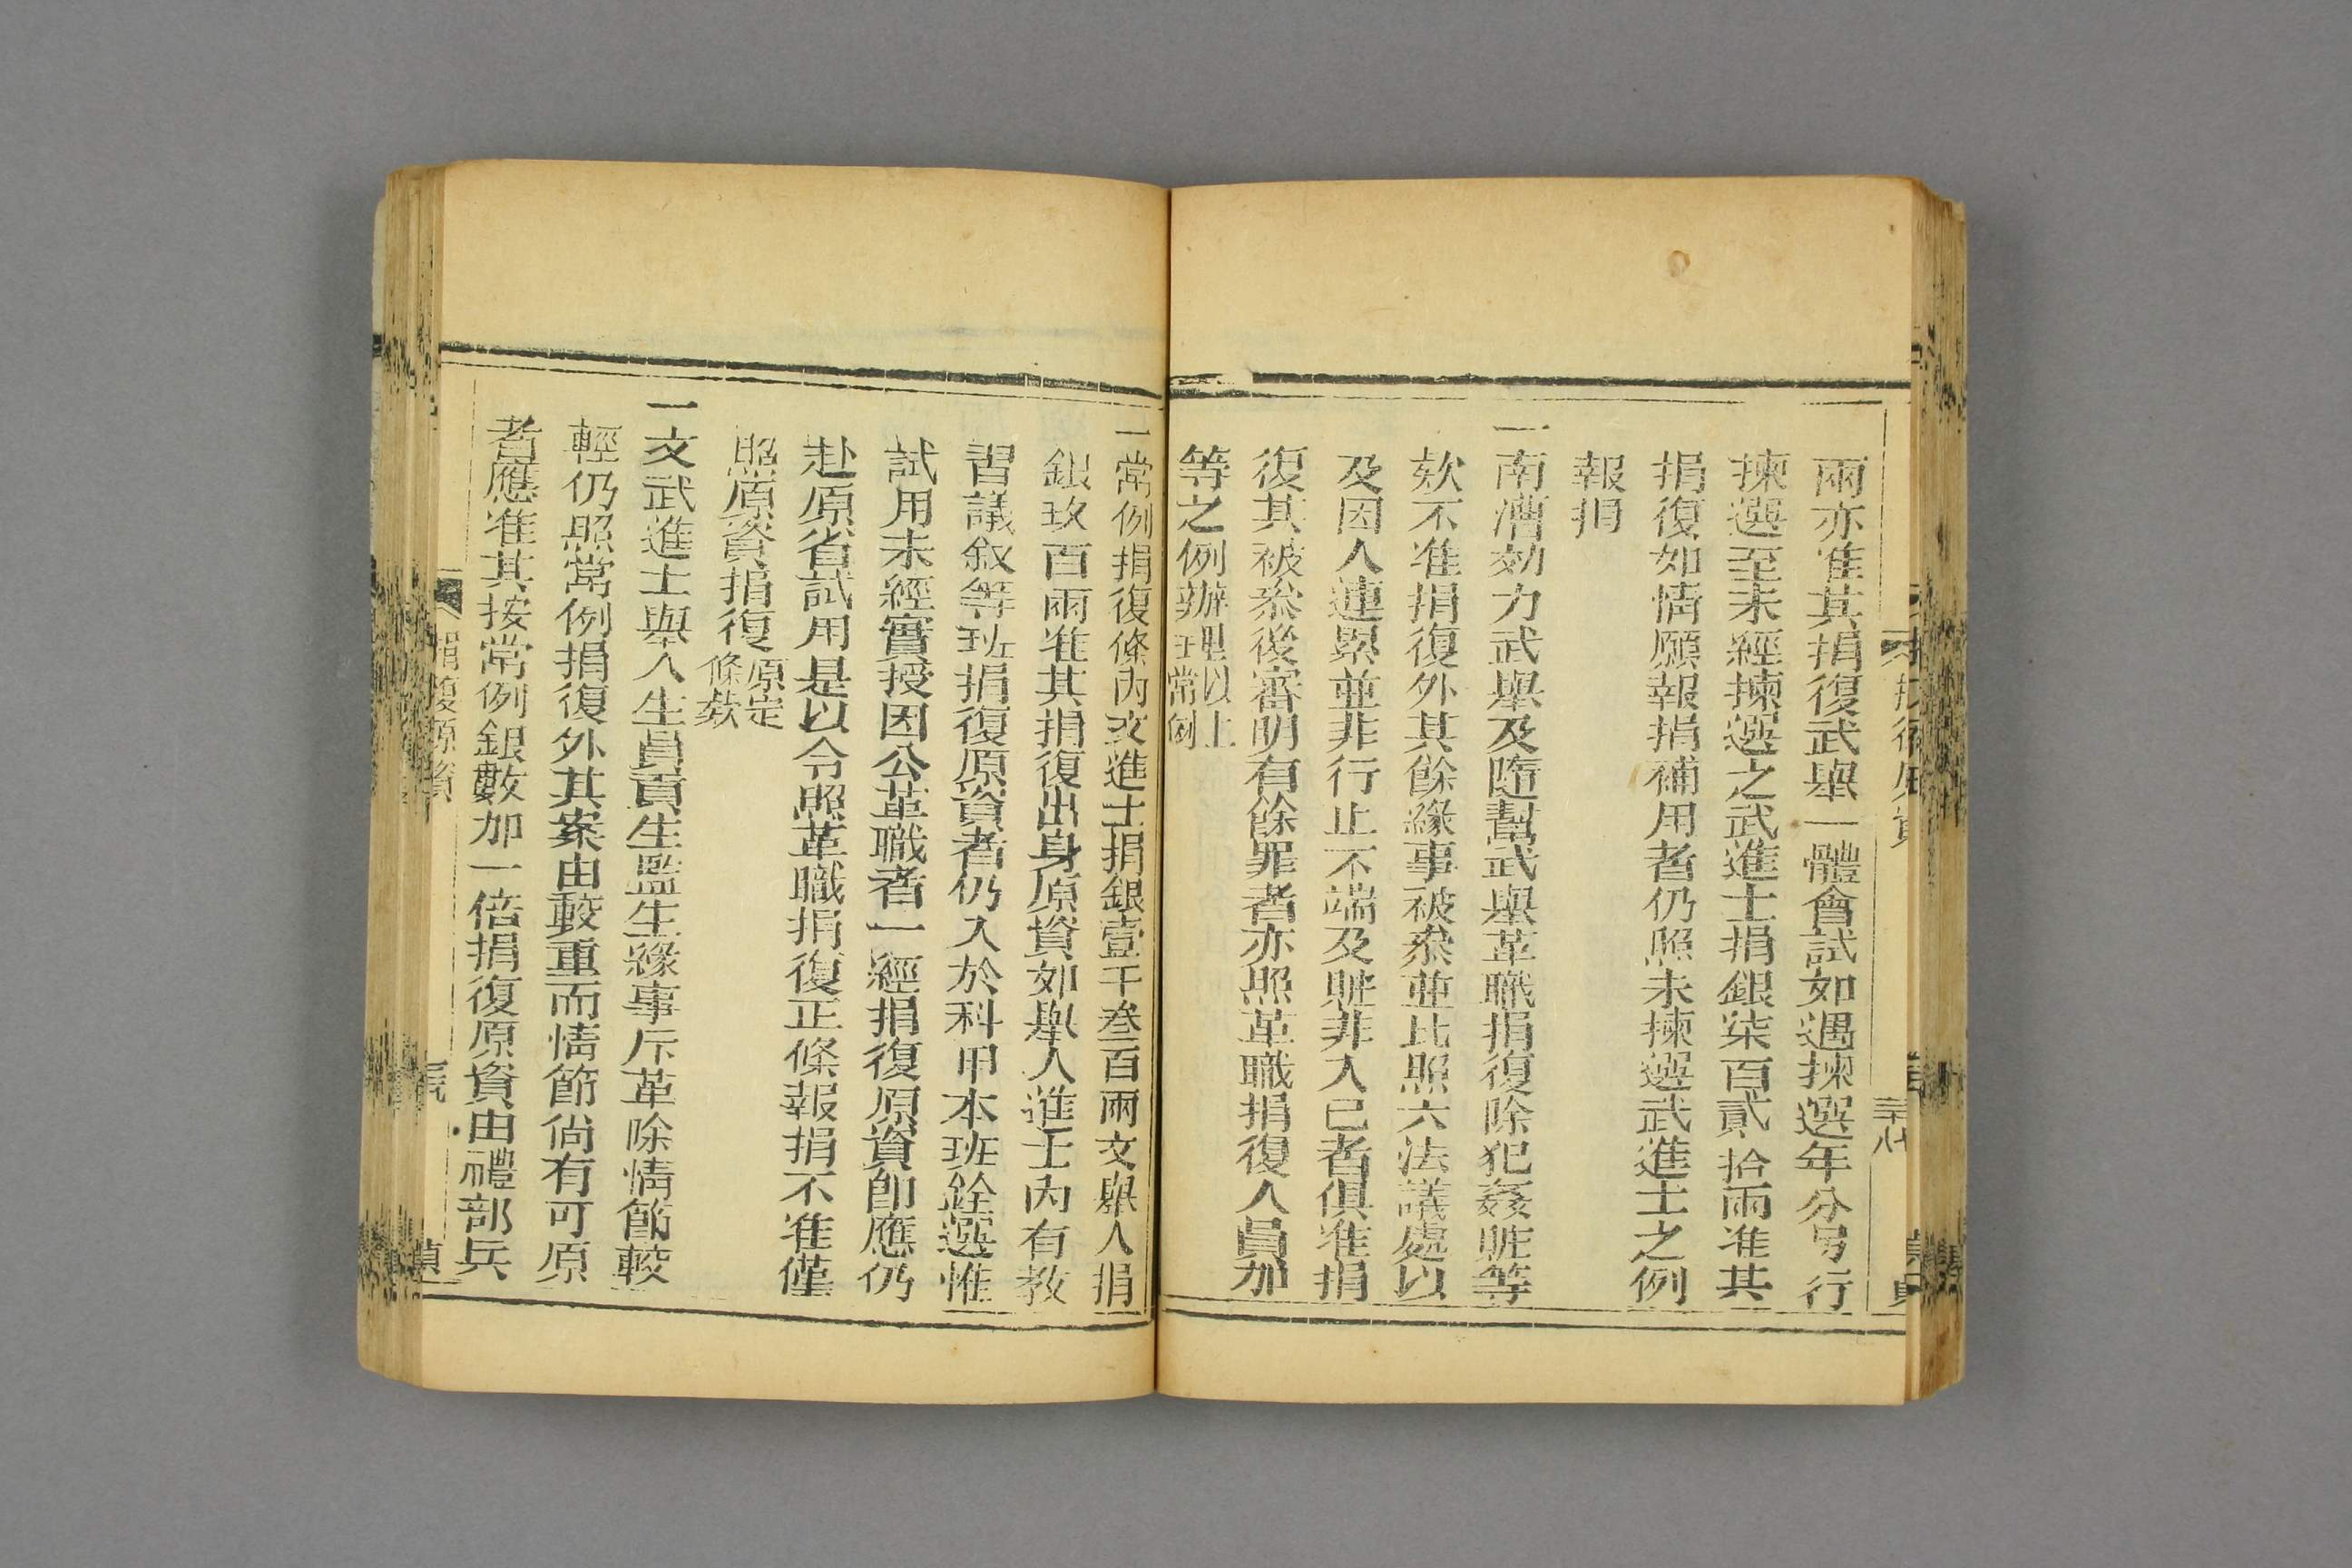 兩亦准其捐復武舉一體會試如遇揀選年分另行
揀選至未經揀選之武進士捐銀柒百貳拾兩准其
捐復如情願報捐補用者仍照未揀選武進士之例
報捐
一南漕効力武舉及隨幫武舉革職捐復除犯姦賍等
欵不准捐復外其餘緣事被叅並比照六法議處以
及因人連累並非行止不端及賍非入己者俱准捐
復其被叅後審明有餘罪者亦照革職捐復人員加
等之例辦理以上常例
三十八
一常例捐復條內文進士捐銀壹千叁百兩文舉人捐
銀玖百兩准其捐復出身原資如舉人進士內有教
習議敘等班捐復原資者仍入於科甲本班銓選惟
試用未經實授因公革職者一經捐復原資卽應仍
赴原省試用是以令照革職捐復正條報捐不准僅
照原資捐復原定條欵
一文武進士舉人生員貢生監生緣事斥革除情節較
輕仍照常例捐復外其案由較重而情節尙有可原
者應准其按常例銀數加一倍捐復原資由禮部兵
捐復原資
貞